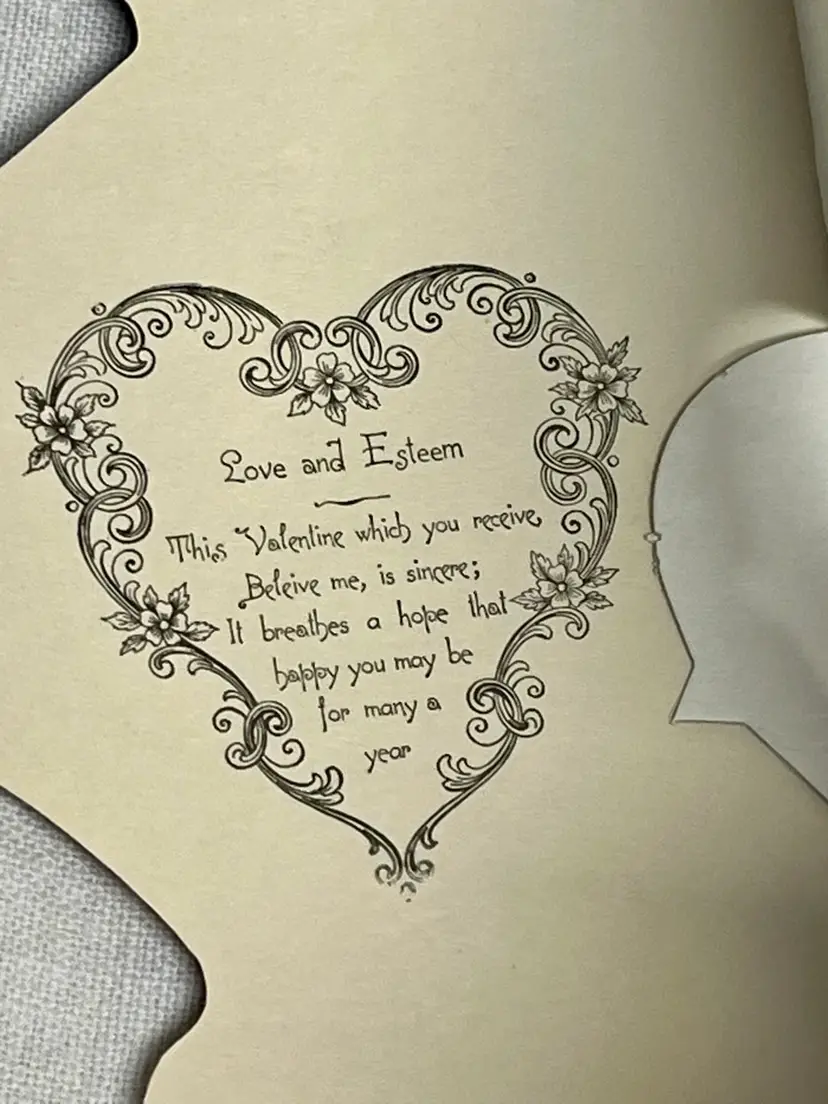 Love and Esteem
This Valentine which you receive,
Beleive me, is sincere;
It breathes a hope that
happy you may be
for many a
year